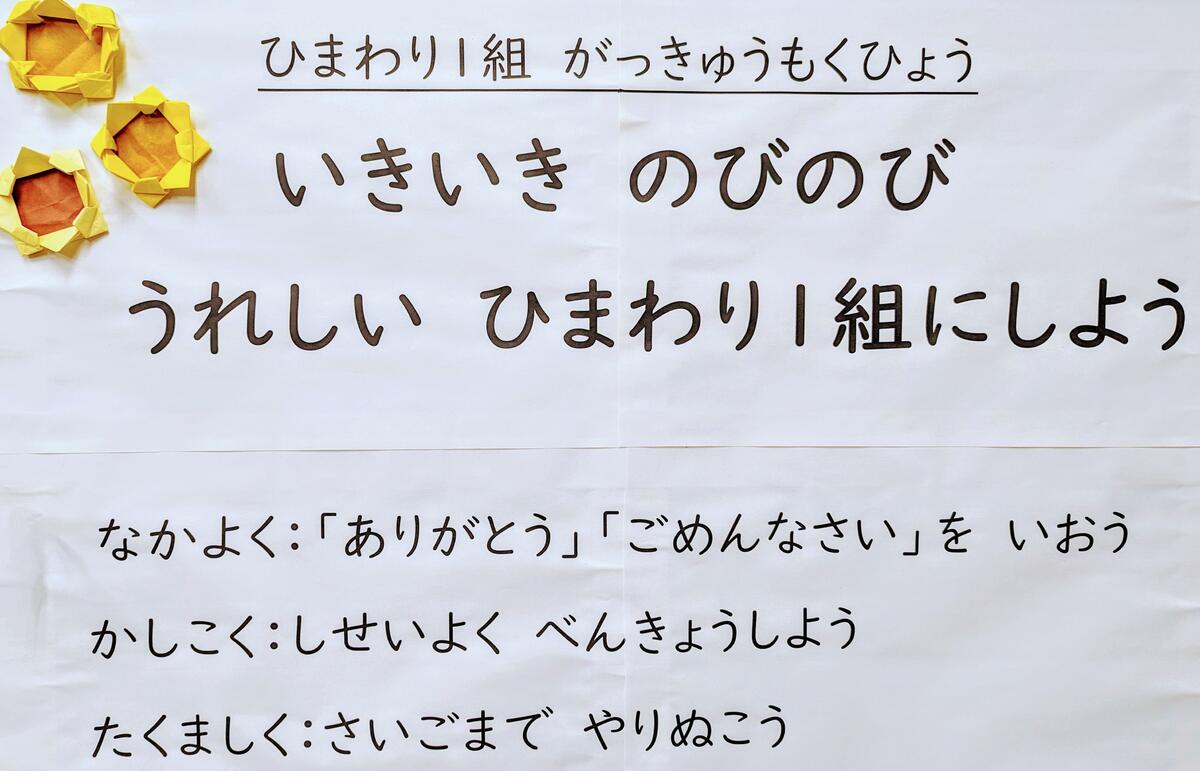 ひまわり1組 がっきゅうもくひょう
いきいき のびのび
うれしい ひまわり1組にしよう
なかよく:「ありがとう」「ごめんなさい」を いおう
かしこく:しせいよく べんきょうしよう
たくましく:さいごまで やりぬこう